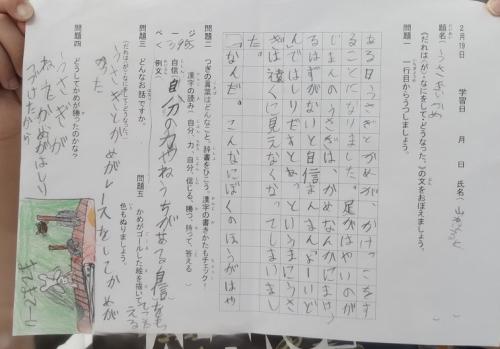 2月19日　学習日　月　日　氏名(
題名(うさぎとかめ)
(だれは(が)・なにをして・どうなった。)の文をおぼえましょう。
問題一　一行目からうつしましょう。
ある日うさぎとかめが、かけっこをす
ることになりました。足がはやいのが
じまんのうさぎは、かめなんかにまけ
るはずがないと自信まんまん。よーいど
ん」ではしりだすとあっというまにうさ
ぎは遠くに見えなくなってしまいまし
た。
「なんだ。こんなにぼくのほうがはや
問題二　つぎの言葉はどんなこと。辞書をひこう。漢字の書きかたもチェック！
漢字の読み　自分、力、自分、信じる、勝つ、持って、答える
ページ
自信
例文　自分の力やねうちがある
自信
問題三　どんなお話ですか。
(だれは(が)・なにをして・どうなった。)
うさぎとかめがレースをしてかめが
かった
問題四　どうしてかめが勝ったのかな？
うさぎが
かめがはしり
つづけたから
問題五　かめがゴールした絵を描いて
色もぬりましょう。